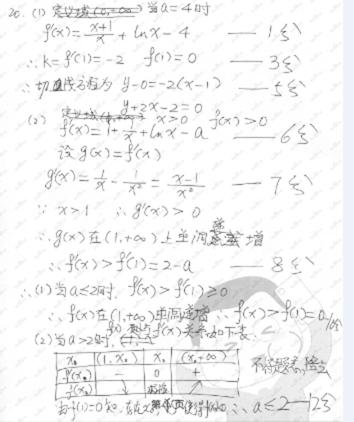 20. (1) 定义域(0,+∞) 当a=4时
f'(x)=\frac{x+1}{x}+lnx-4 —— 1分
∴k=f'(1)=-2 f(1)=0 —— 3分
∴切线方程为 y-0=-2(x-1) —— 5分
y+2x-2=0
(2) x>0 f(x)>0
f'(x)=1+\frac{1}{x}+lnx-a —— 6分
设g(x)=f'(x)
g'(x)=\frac{1}{x}-\frac{1}{x²}=\frac{x-1}{x²} —— 7分
∵ x>1 ∴g'(x)>0
∴g(x)在(1,+∞)上单调递增
∴f'(x)>f'(1)=2-a —— 8分
∴(1)当a≤2时,f'(x)>f'(1)≥0
∴f(x)在(1,+∞)单调递增 ∴f(x)>f(1)=0 10分
(2)当a>2时, f'(x)关系如下表
(1,x₀) x₀ (x₀,+∞)
- 0 +
↘ ↗
不符题意,舍去
由f(1)=0知, ∴a≤2 —12分